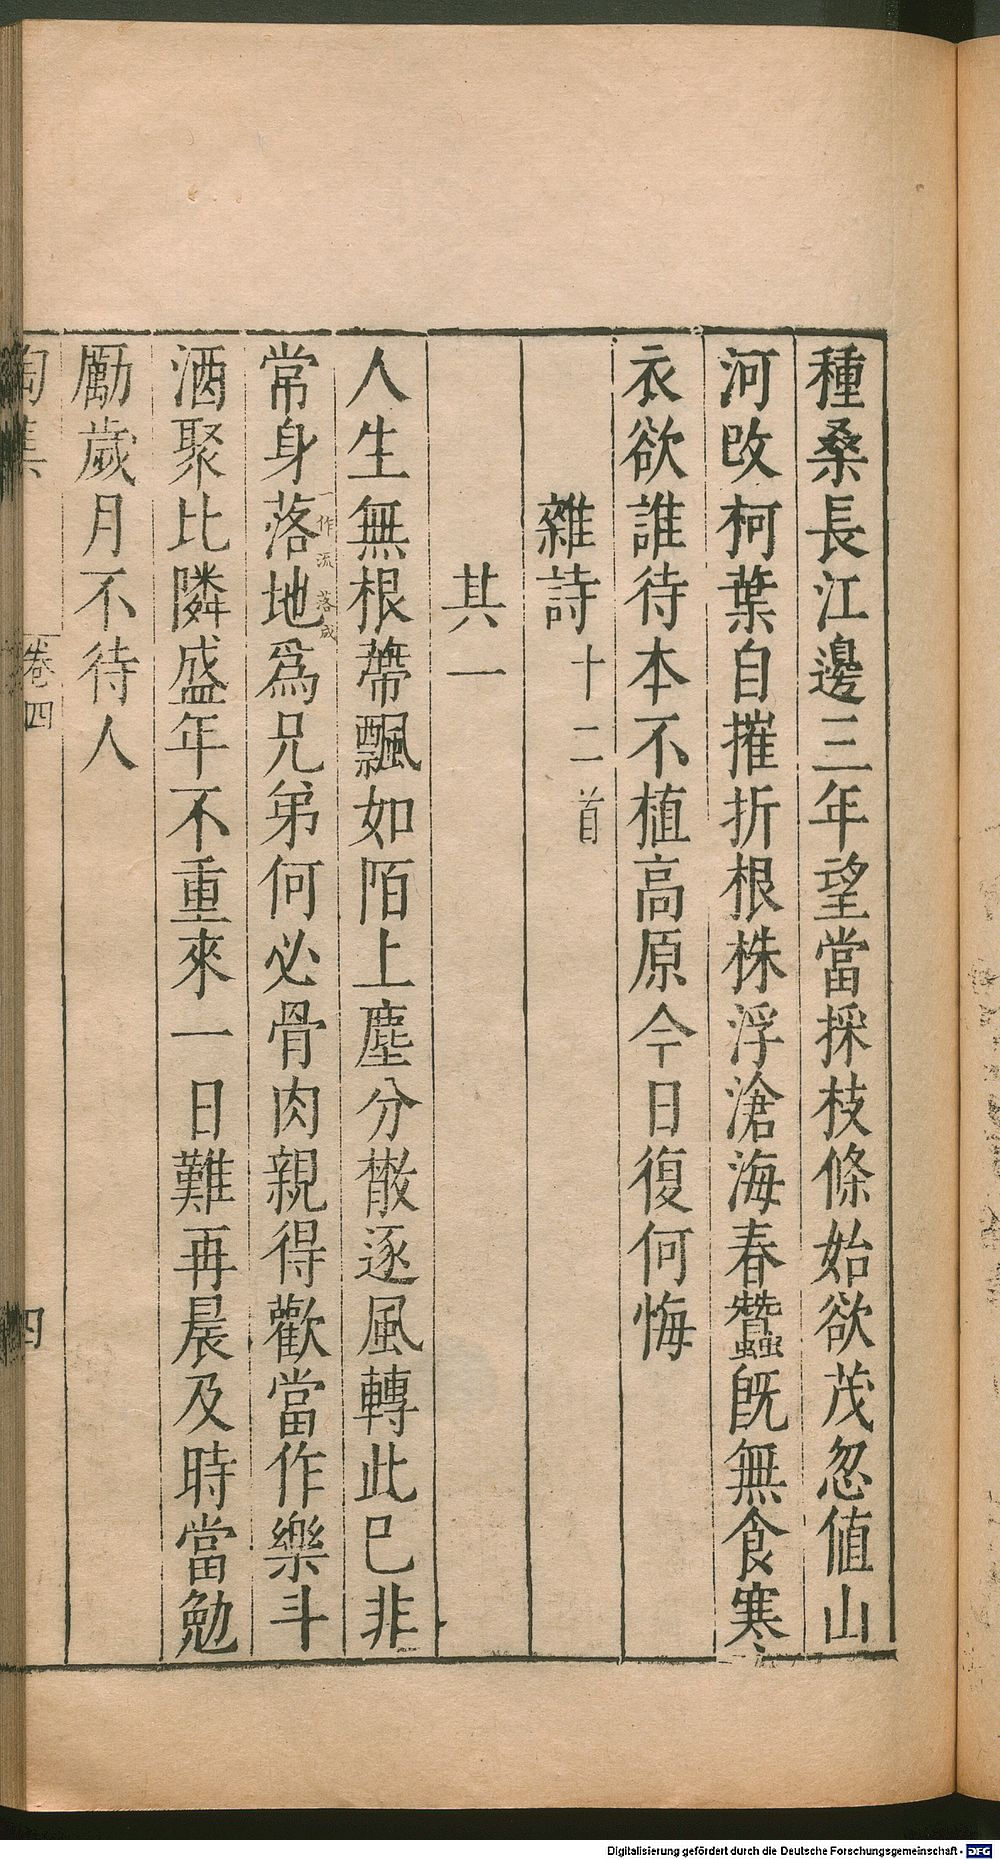 種桑長江邊三年望當採枝條始欲茂忽値山
河改柯葉自摧折根株浮滄海春蠶旣無食寒
衣欲誰待本不植高原今日復何悔
雜詩十二首
其一
人生無根蔕飄如陌上塵分散逐風轉此已非
常身落地爲兄弟何必骨肉親得歡當作樂斗
一作流落成
酒聚比隣盛年不重來一日難再晨及時當勉
勵歲月不待人
陶集 卷四 四
Digitalisierung gefördert durch die Deutsche Forschungsgemeinschaft - DFG